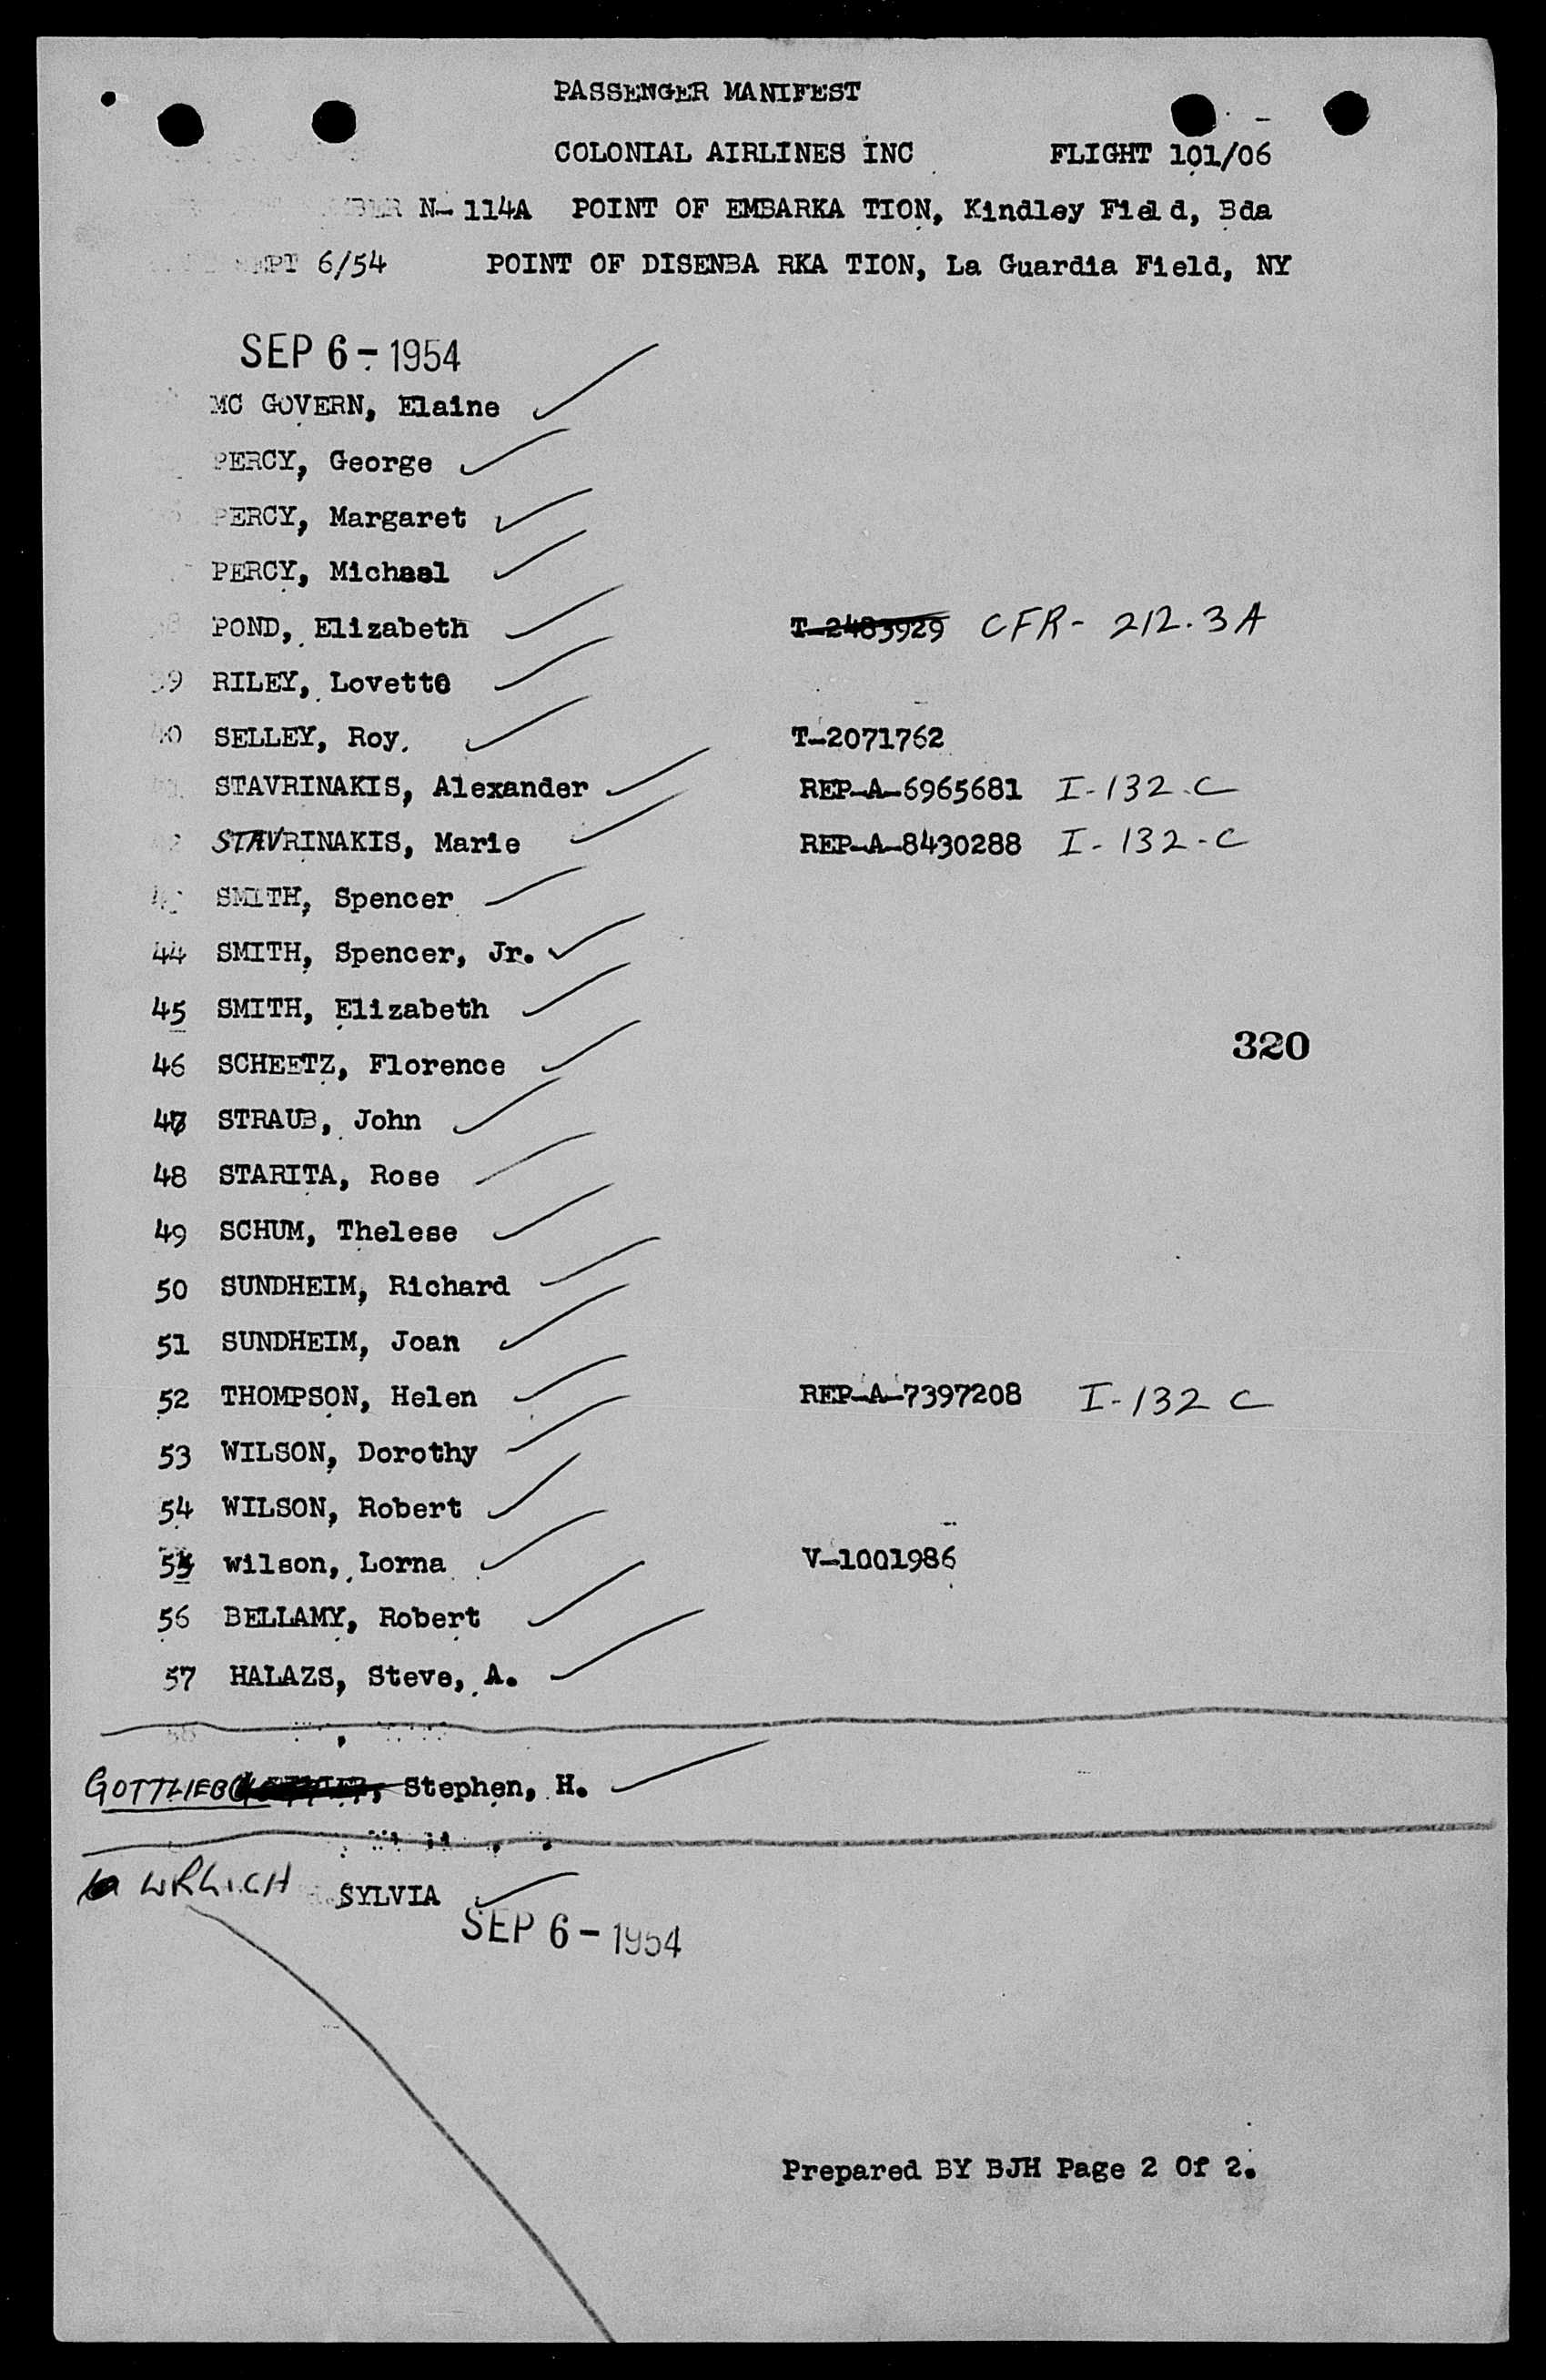 PASSENGER MANIFEST
COLONIAL AIRLINES INC FLIGHT 101/06
N-114A POINT OF EMBARKA TION, Kindley Field, Bda
SEPT 6/54 POINT OF DISENBA RKA TION, La Guardia Field, NY
SEP 6-1954
MC GOVERN, Elaine
PERCY, George
PERCY, Margaret
PERCY, Michael
POND, Elizabeth T-2483929 CFR- 212.3A
39 RILEY, Lovette
40 SELLEY, Roy. T-2071762
STAVRINAKIS, Alexander REP-A-6965681 I-132-C
STAVRINAKIS, Marie REP-A-8430288 I-132-C
SMITH, Spencer
44 SMITH, Spencer, Jr.
45 SMITH, Elizabeth
320
46 SCHEETZ, Florence
47 STRAUB, John
48 STARITA, Rose
49 SCHUM, Thelese
50 SUNDHEIM, Richard
51 SUNDHEIM, Joan
52 THOMPSON, Helen REP-A-7397208 I-132 C
53 WILSON, Dorothy
54 WILSON, Robert
55 wilson, Lorna V-1001986
56 BELLAMY, Robert
57 HALAZS, Steve, A.
GOTTLIEB Stephen, H.
SYLVIA
SEP 6-1954
Prepared BY BJH Page 2 Of 2.